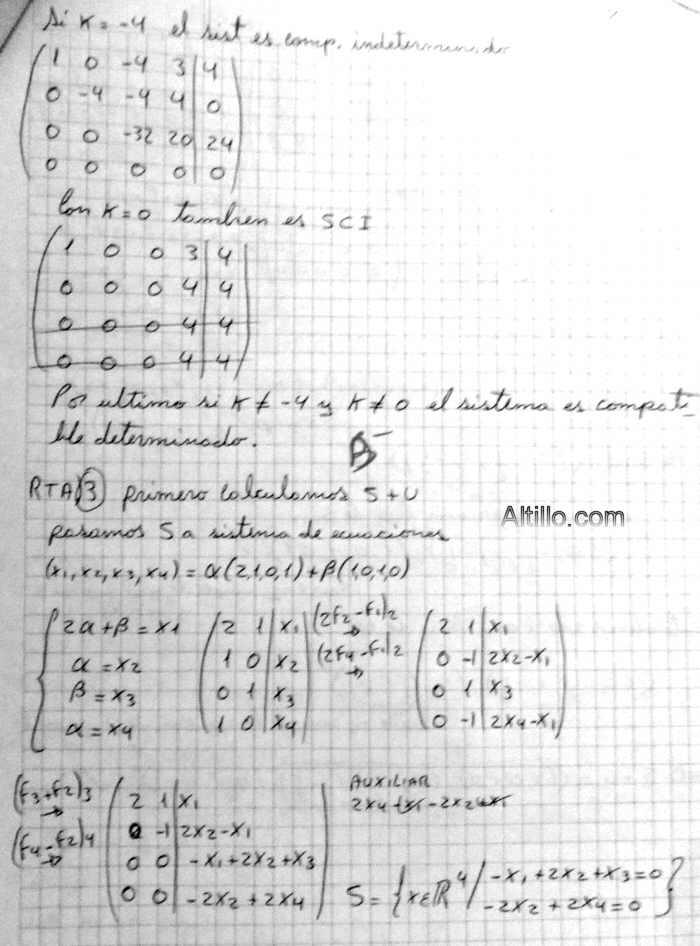 Si K = -4 el sist es comp. indeterminado
1 0 -4 3 | 4
0 -4 -4 4 | 0
0 0 -32 20 | 24
0 0 0 0 | 0
Con K=0 tambien es SCI
1 0 0 3 | 4
0 0 0 4 | 4
0 0 0 4 | 4
0 0 0 4 | 4
Por ultimo si K ≠ -4 y K ≠ 0 el sistema es compati-
ble determinado.
B-
RTA 3) primero calculamos S+U
Altillo.com
pasamos S a sistema de ecuaciones
(x1, x2, x3, x4) = α(2,1,0,1) + β(1,0,1,0)
2α+β = x1
α = x2
β = x3
α = x4
2 1 | x1
1 0 | x2
0 1 | x3
1 0 | x4
(2F2-F1)2 →
(2F4-F1)2 →
2 1 | x1
0 -1 | 2x2-x1
0 1 | x3
0 -1 | 2x4-x1
(F3+F2)3 →
(F4-F2)4 →
2 1 | x1
0 -1 | 2x2-x1
0 0 | -x1+2x2+x3
0 0 | -2x2+2x4
AUXILIAR
2x4-x1-2x2+x1
S = {x∈R^4 / -x1+2x2+x3=0
-2x2+2x4=0}